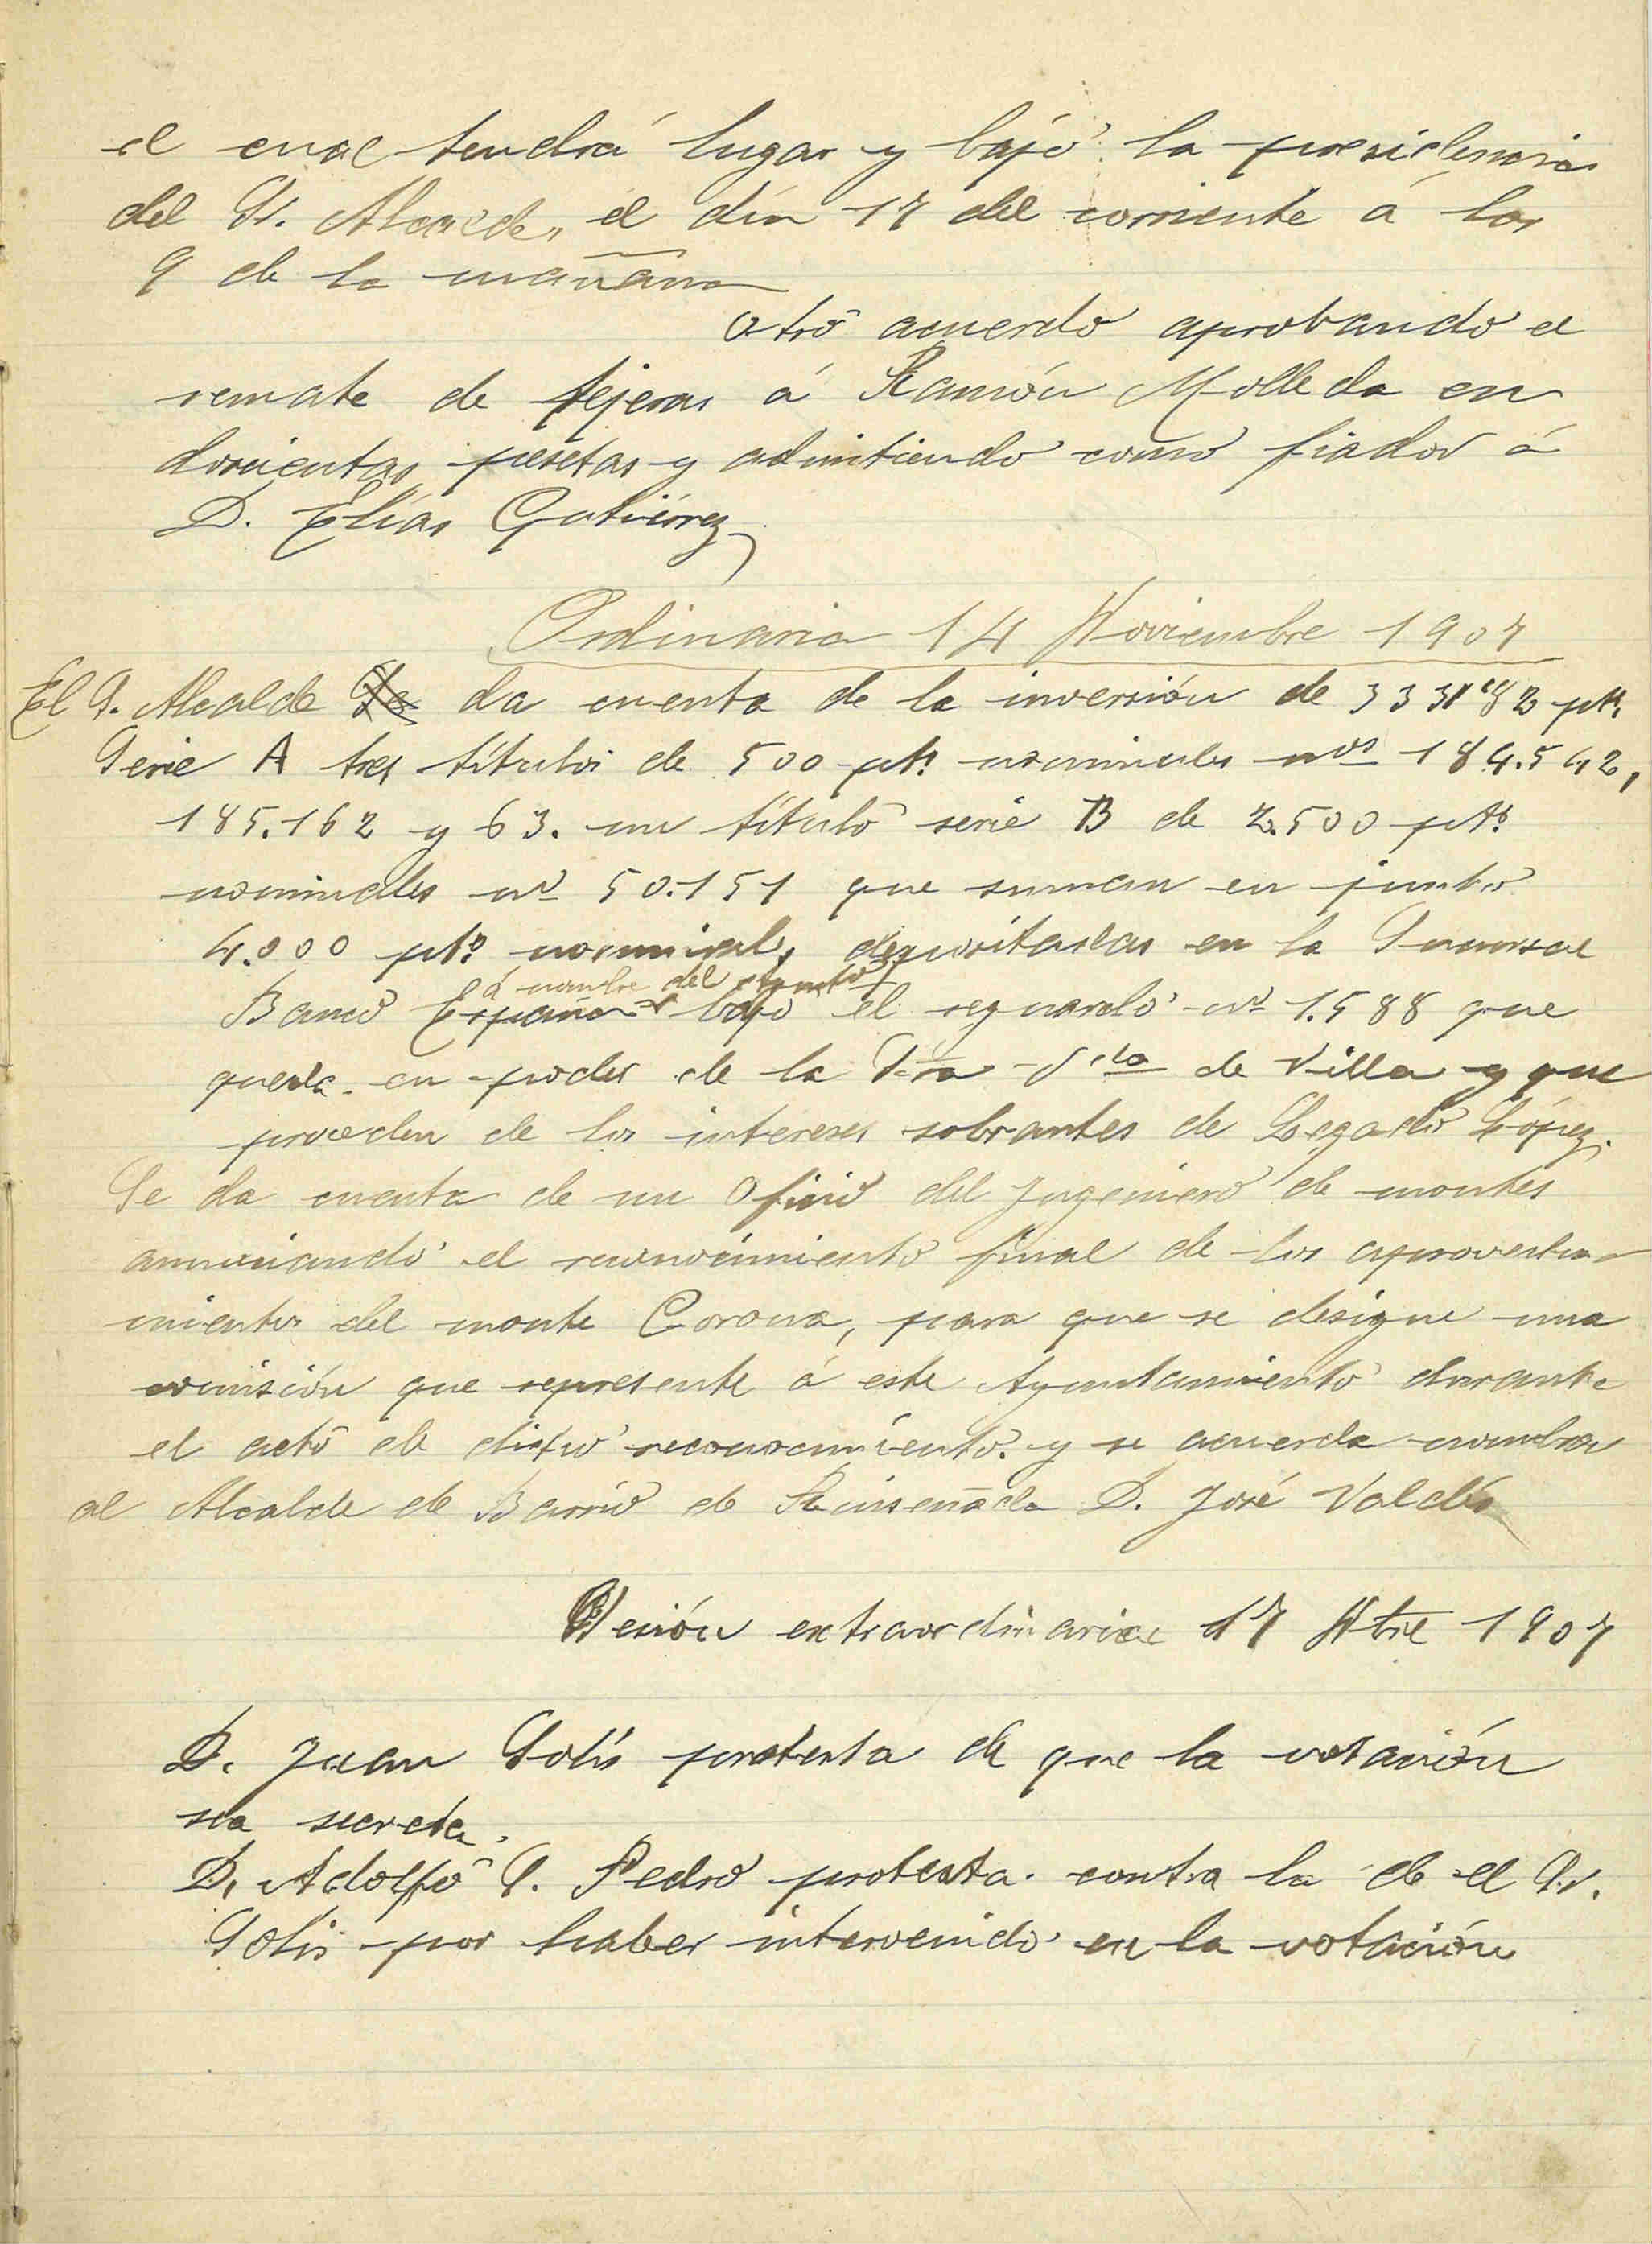 el cual tendrá lugar y bajo la presidencia
del Sr. Alcalde, el día 17 del corriente á las
9 de la mañana
Otro acuerdo aprobando el
remate de tejeras á Ramón Molleda en
doscientas pesetas y admitiendo como fiador á
D. Elías Gutiérrez
Ordinaria 14 Noviembre 1907
El S. Alcalde da cuenta de la inversión de 3331'82 pts.
Serie A tres títulos de 500 pts nominales nos 184.542,
185.162 y 63. un título serie B de 2.500 pts
nominales nº 50.151 que suman en junto
4.000 pts nominales, depositadas en la Sucursal
á nombre del Ayunto
Banco España bajo el resguardo nº 1.588 que
queda en poder de la de Villa y que
proceden de los intereses sobrantes de Legado López.
Se da cuenta de un Oficio del Ingeniero de montes
anunciando el reconocimiento final de los aprovecha-
mientos del monte Corona, para que se designe una
comisión que represente á este Ayuntamiento durante
el acto de dicho reconocimiento. y se acuerda nombrar
al Alcalde de Barrio de Rioseñada D. José Valdés
Sesión extraordinaria 17 Nbre 1907
D. Juan Solís protesta de que la votación
sea secreta.
D. Adolfo S. Pedro protesta contra la de el Sr.
Solís por haber intervenido en la votación